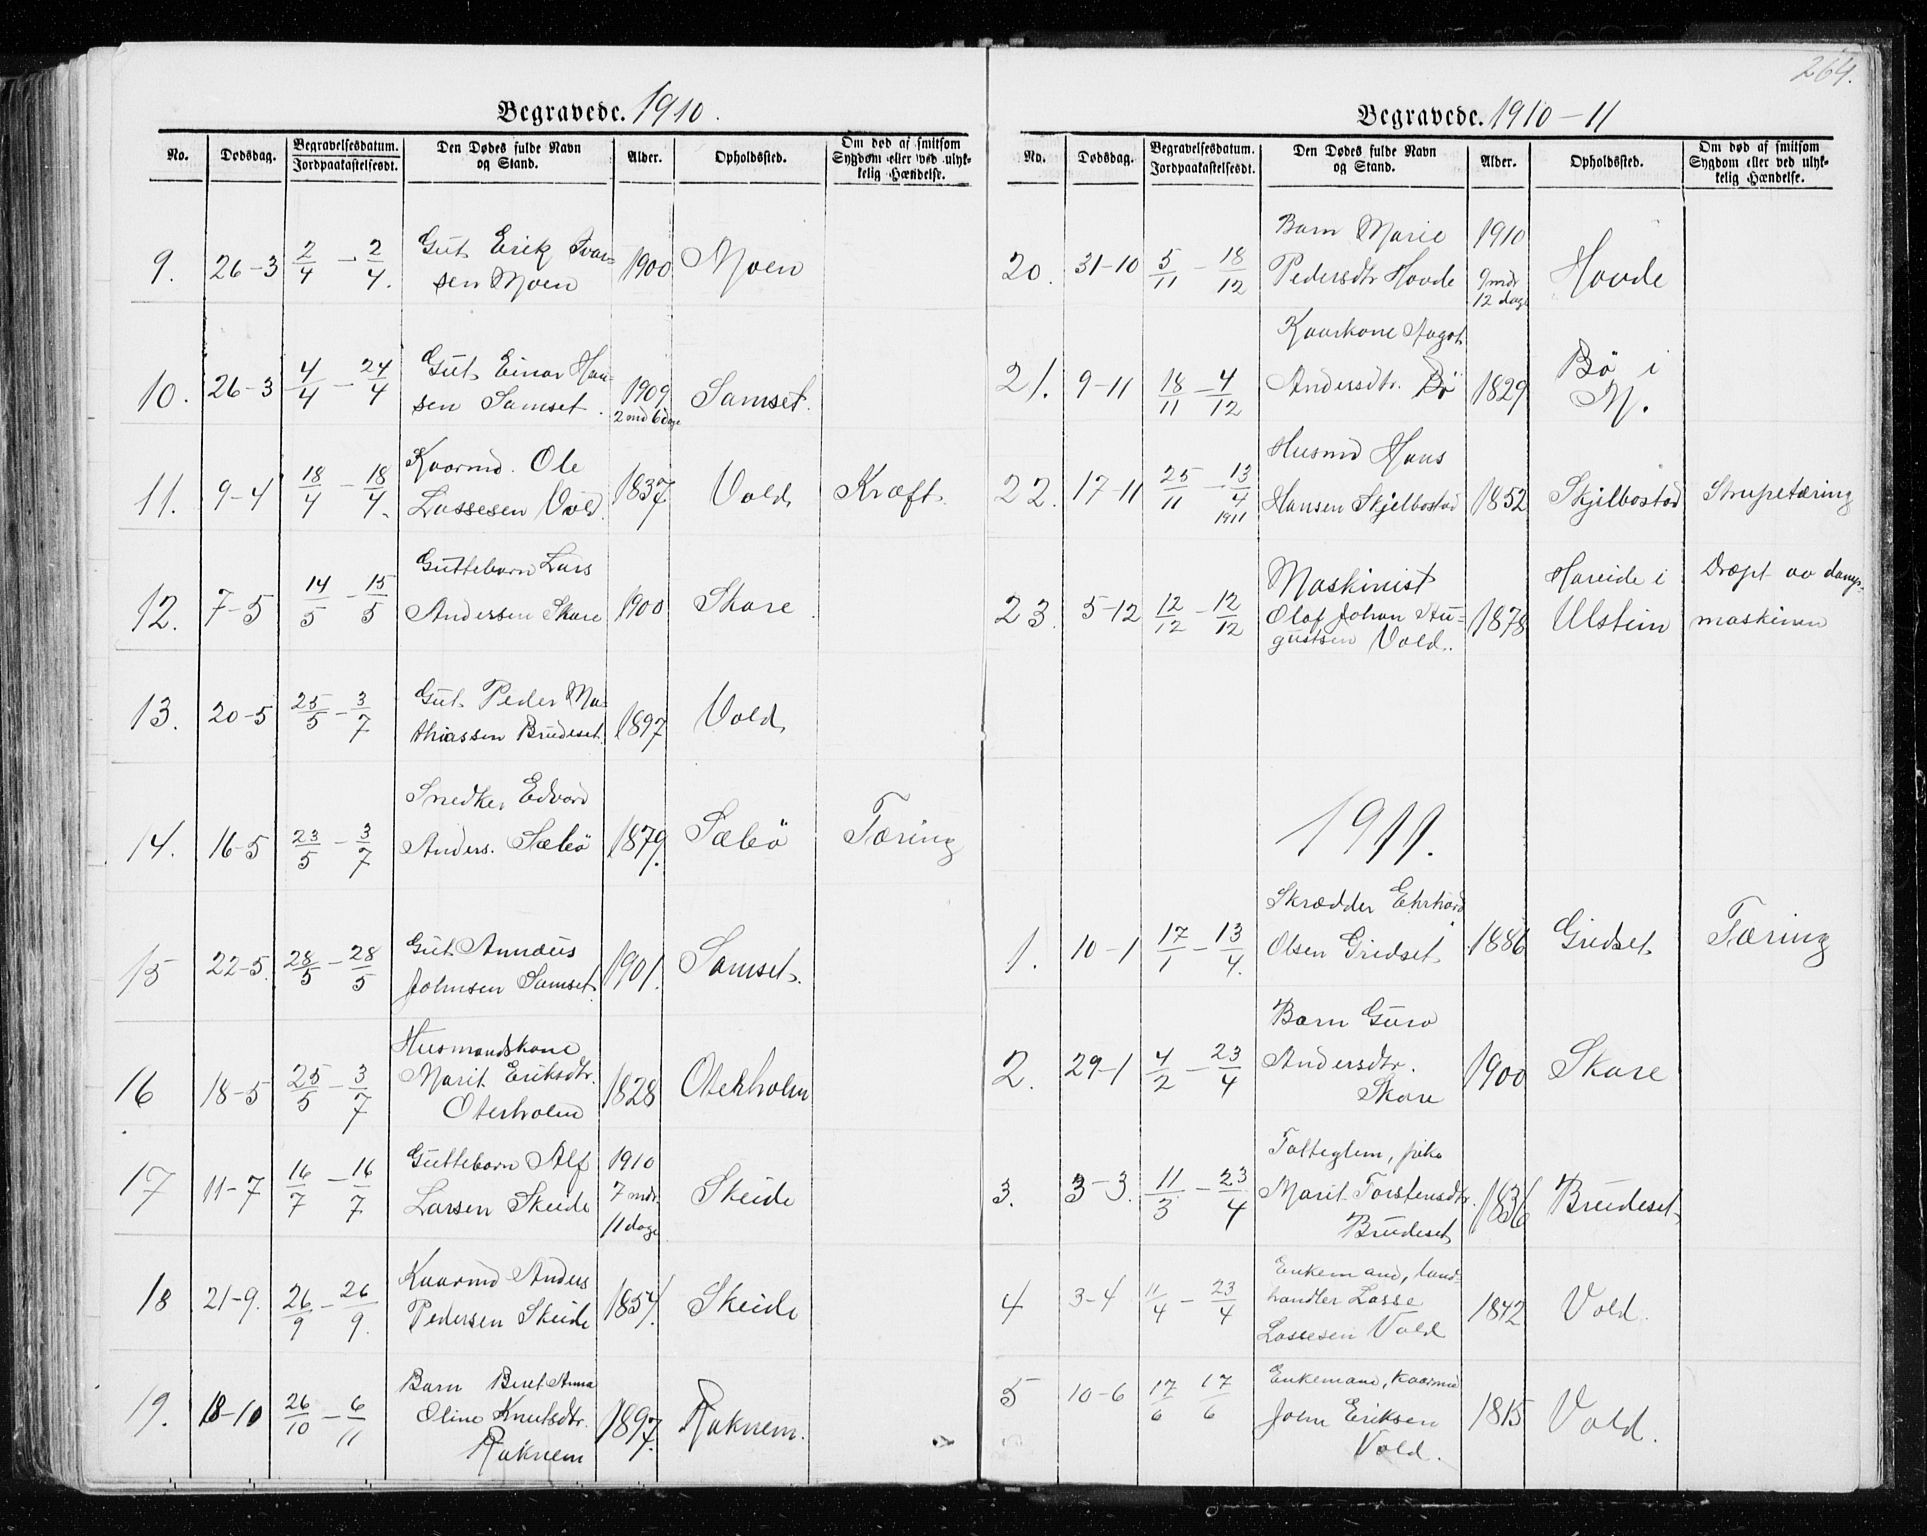 264.
Begravede. 1910.
No. Dødsdag. Begravelsesdatum. Jordpaakastelsesdt. Den Dødes fulde Navn og Stand. Alder. Opholdssted. Om død af smitsom Sygdom eller ved ulykkelig Hændelse.
9. 26-3 2/4 - 2/4. Gut Erik Ivarsen Moen 1900 Moen
10. 26-3 4/4 - 24/4 Gut Einar Hansen Samset. 1909 2 md 6 dge Samset.
11. 9-4 18/4 - 18/4. Kaarmd. Ole Lassesen Vold. 1837 Vold Kræft.
12. 7-5 14/5 - 15/5 Guttebarn Lars Andersen Skare 1900 Skare
13. 20-5 25/5 - 3/7 Gut Peder Mathiassen Brudeset. 1897 Vold
14. 16-5 23/5 - 3/7 Snedker Edvard Anders. Sæbø 1879. Sæbø Tæring
15 22-5. 28/5 - 28/5 Gut Annæus Johnsen Samset. 1901. Samset.
16 18-5 25/5 - 3/7 Husmandskone Marit Eriksdtr. Oterholm 1828 Oterholm
17 11-7 16/7 - 16/7 Guttebarn Alf Larsen Skeide 1910 7 mdr. 11 dage Skeide
18 21-9. 26/9 - 26/9. Kaarmd Anders Pedersen Skeide 1854. Skeide
19. 18-10 26/10 - 6/11 Barn Beret Anna Oline Knutsdtr. Raknem 1897. Raknem.
Begravede. 1910-11
No. Dødsdag. Begravelsesdatum. Jordpaakastelsesdt. Den Dødes fulde Navn og Stand. Alder. Opholdssted. Om død af smitsom Sygdom eller ved ulykkelig Hændelse.
20. 31-10 5/11 - 18/12 Barn Marie Pedersdtr Hovde 1910 9 mdr 12 dage Hovde
21. 9-11 18/11 - 4/12 Kaarkone Aagot Andersdtr. Bø 1829 Bø i M.
22. 17-11 25/11 - 13/4 1911 Husmd Hans Hansen Skjelbostad 1852 Skjelbostad Strupetæring
23. 5-12 12/12 - 12/12 Maskinist Olaf Johan Augustsen Vold. 1878 Hareide i Ulstein Dræpt av dampmaskinen
1911.
1. 10-1 17/1 - 13/4. Skrædder Ehrhard Olsen Gridset 1886 Gridset Tæring
2. 29-1 4/2 - 23/4 Barn Guro Andersdtr. Skare 1900 Skare
3. 3-3. 11/3 - 23/4 Talteglem, pike Marit Torstensdtr. Brudeset 1836 Brudeset
4 3-4 11/4 - 23/4 Enkemand, landhandler Lasse Lassesen Vold 1842 Vold.
5 10-6 17/6 17/6 Enkemand, kaarmd John Eriksen Vold. 1815 Vold.